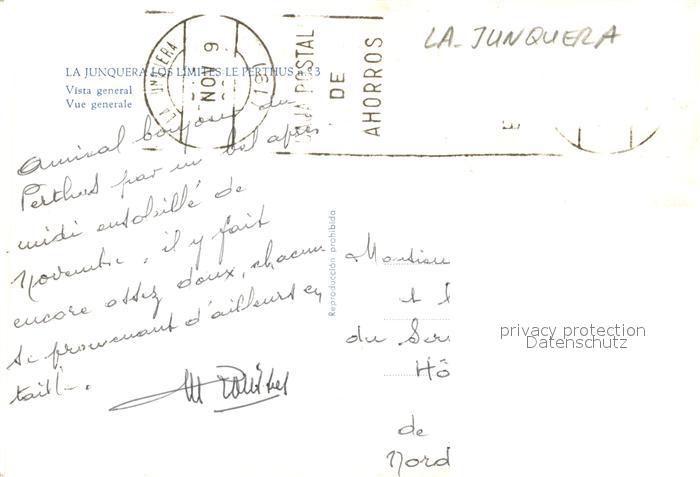 LA JUNQUERA-LOS LIMITES-LE PERTHUS n.º 3
Vista general
Vue generale
LA JUNQUERA
9 NOV
CAJA POSTAL
DE
AHORROS
LA JUNQUERA
Amical bonjour du
Perthus par un bel après
midi ensoleillé de
Novembre, il y fait
encore assez doux, chacun
se promenant d'ailleurs en
taille.
Reproducción prohibida
Monsieur
et
du Ser
Hô
de
Nord
privacy protection
Datenschutz